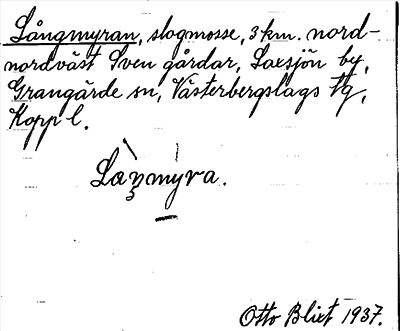 Långmyran, slogmosse, 3 km. nord-
nordväst Sven gårdar, Laxsjön by,
Grangärde sn, Västerbergslags tg,
Kopp l.
Laŋmyra.
Otto Blixt 1937.